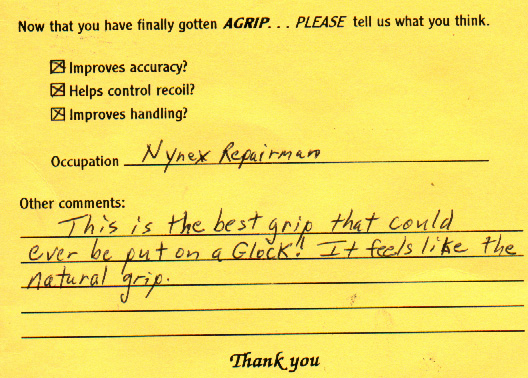 Now that you have finally gotten AGRIP. . . PLEASE tell us what you think.
Improves accuracy?
Helps control recoil?
Improves handling?
Occupation Nynex Repairman
Other comments:
This is the best grip that could
ever be put on a Glock! It feels like the
natural grip.
Thank you